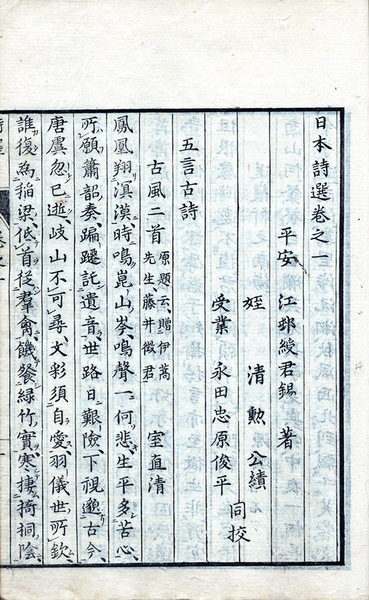 日本詩選卷之一
平安 江邨綬君錫 著
姪 清勲公績
受業 永田忠原俊平 同挍
五言古詩
古風二首 原題云贈伊萬先生藤井徵君 室直清
鳳凰翔溟漠時鳴崑山岑鳴聲一何悲生平多苦心
所願簫韶奏蹁躚託遺音世路日艱險下視邈古今
唐虞忽已逝岐山不可尋文彩須自愛羽儀世所欽
誰復為稻粱低首從羣禽饑飡綠竹實寒棲椅桐陰